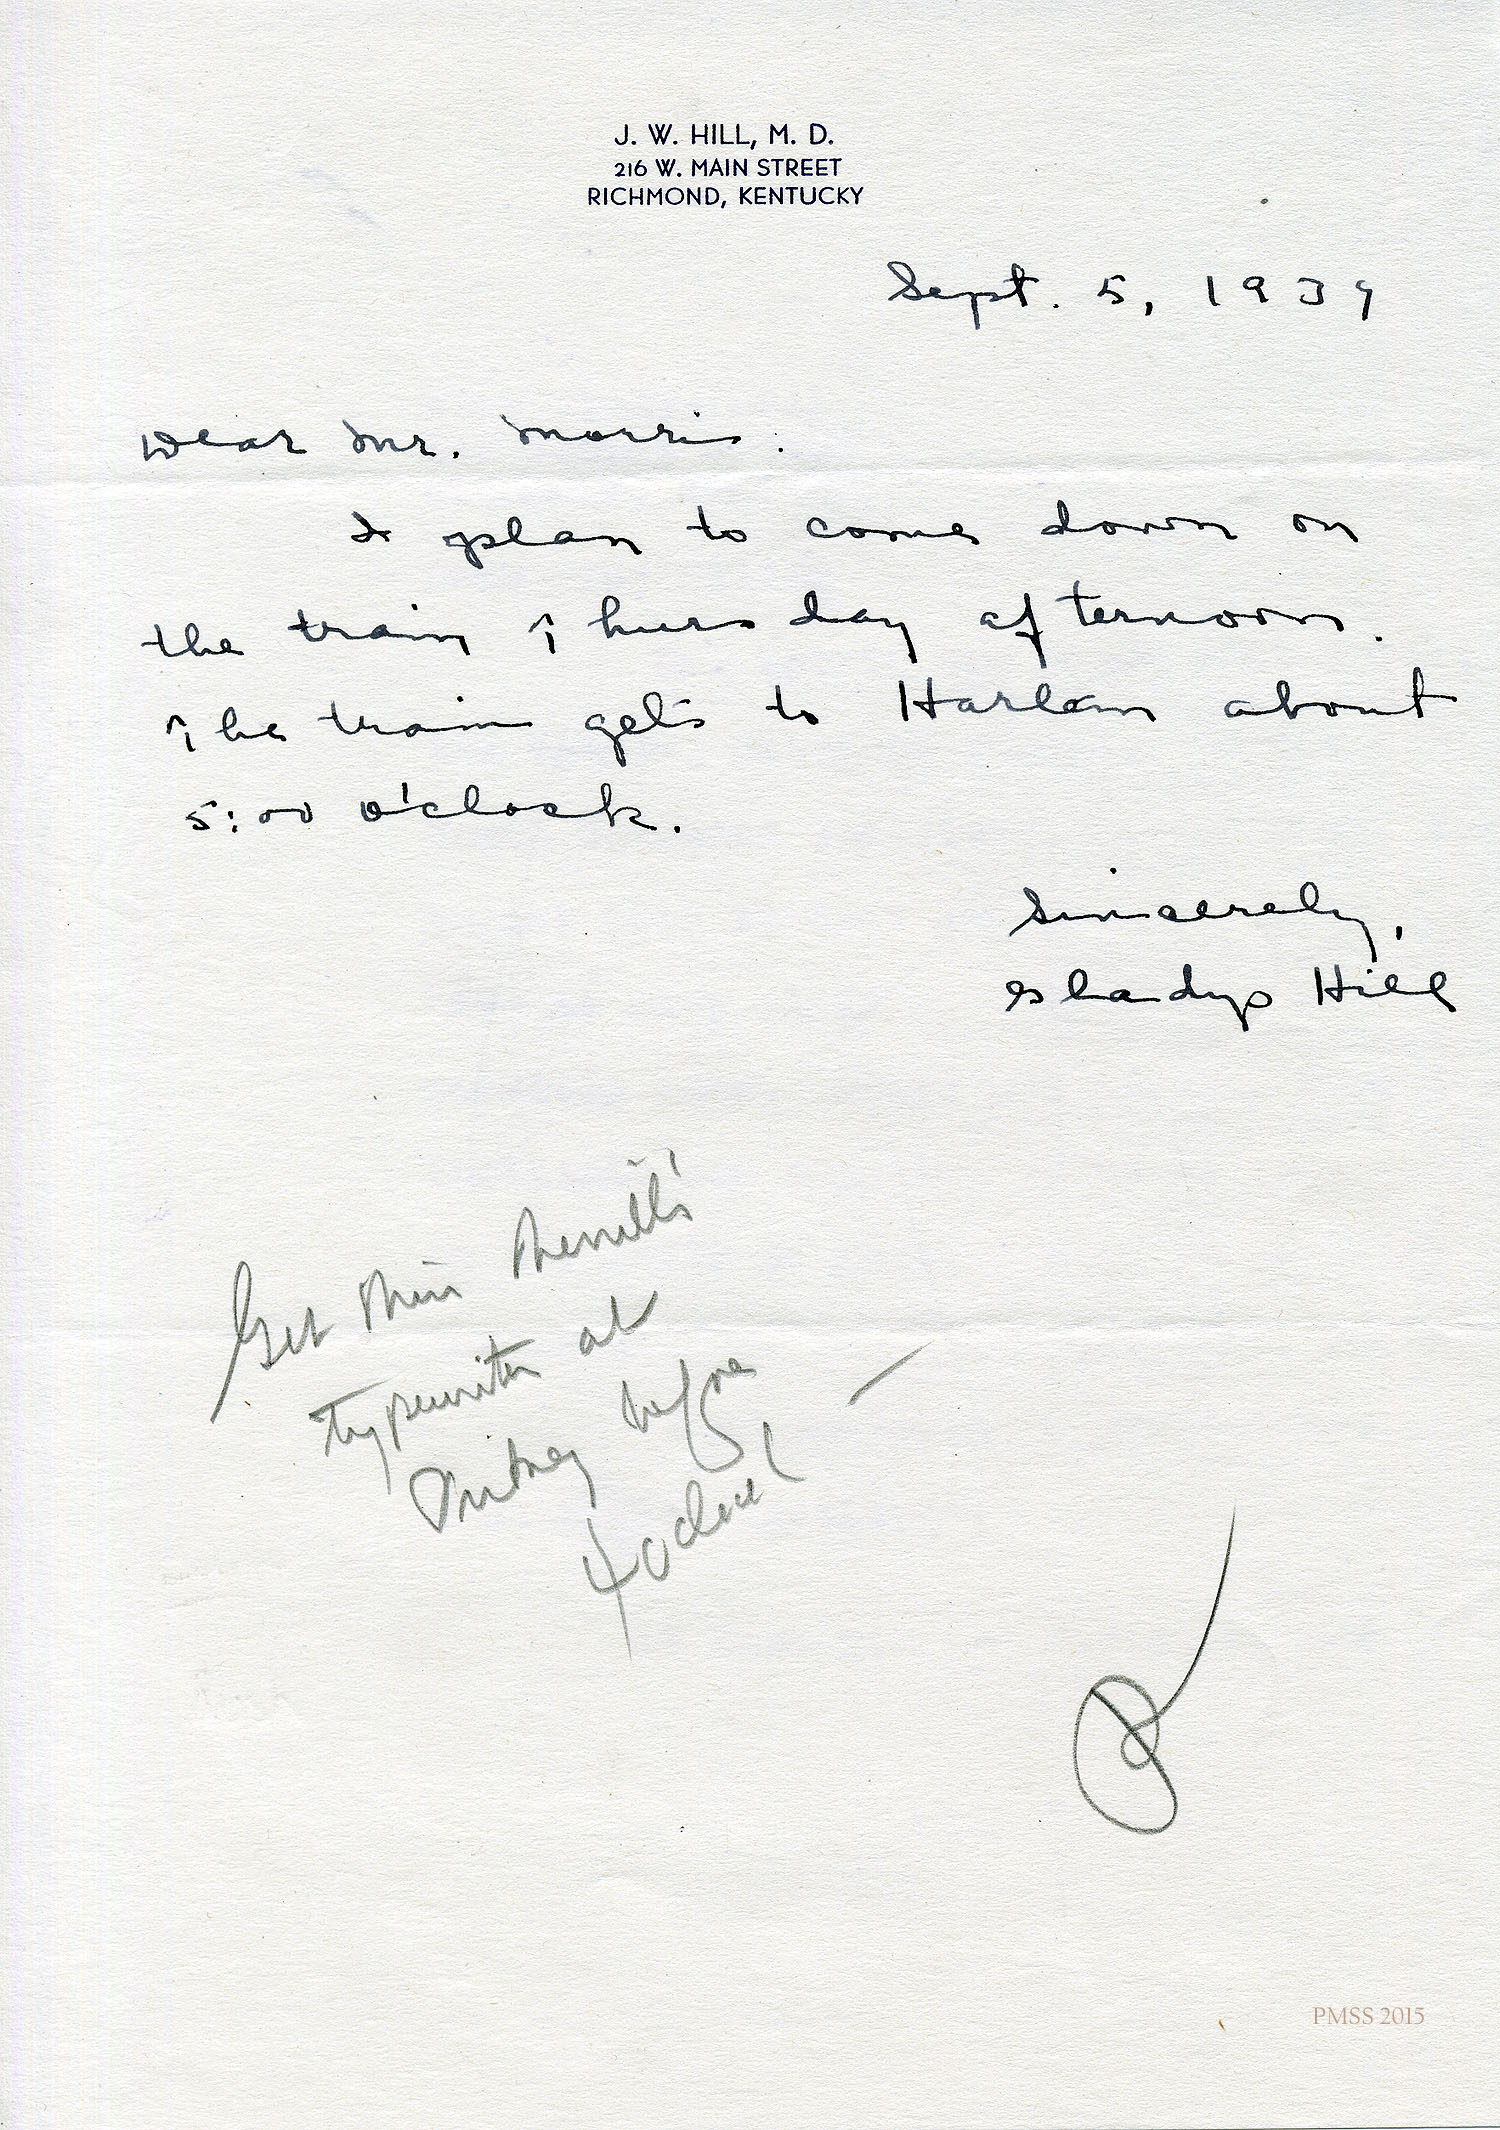 J. W. HILL, M. D.
216 W. MAIN STREET
RICHMOND, KENTUCKY
Sept. 5, 1939
Dear Mr. Morris:
I plan to come down on
the train Thursday afternoon.
The train gets to Harlan about
5:00 o'clock.
Sincerely,
Gladys Hill
Get Miss Merrill's
typewriter at
Putney before
4 oclock —
PMSS 2015